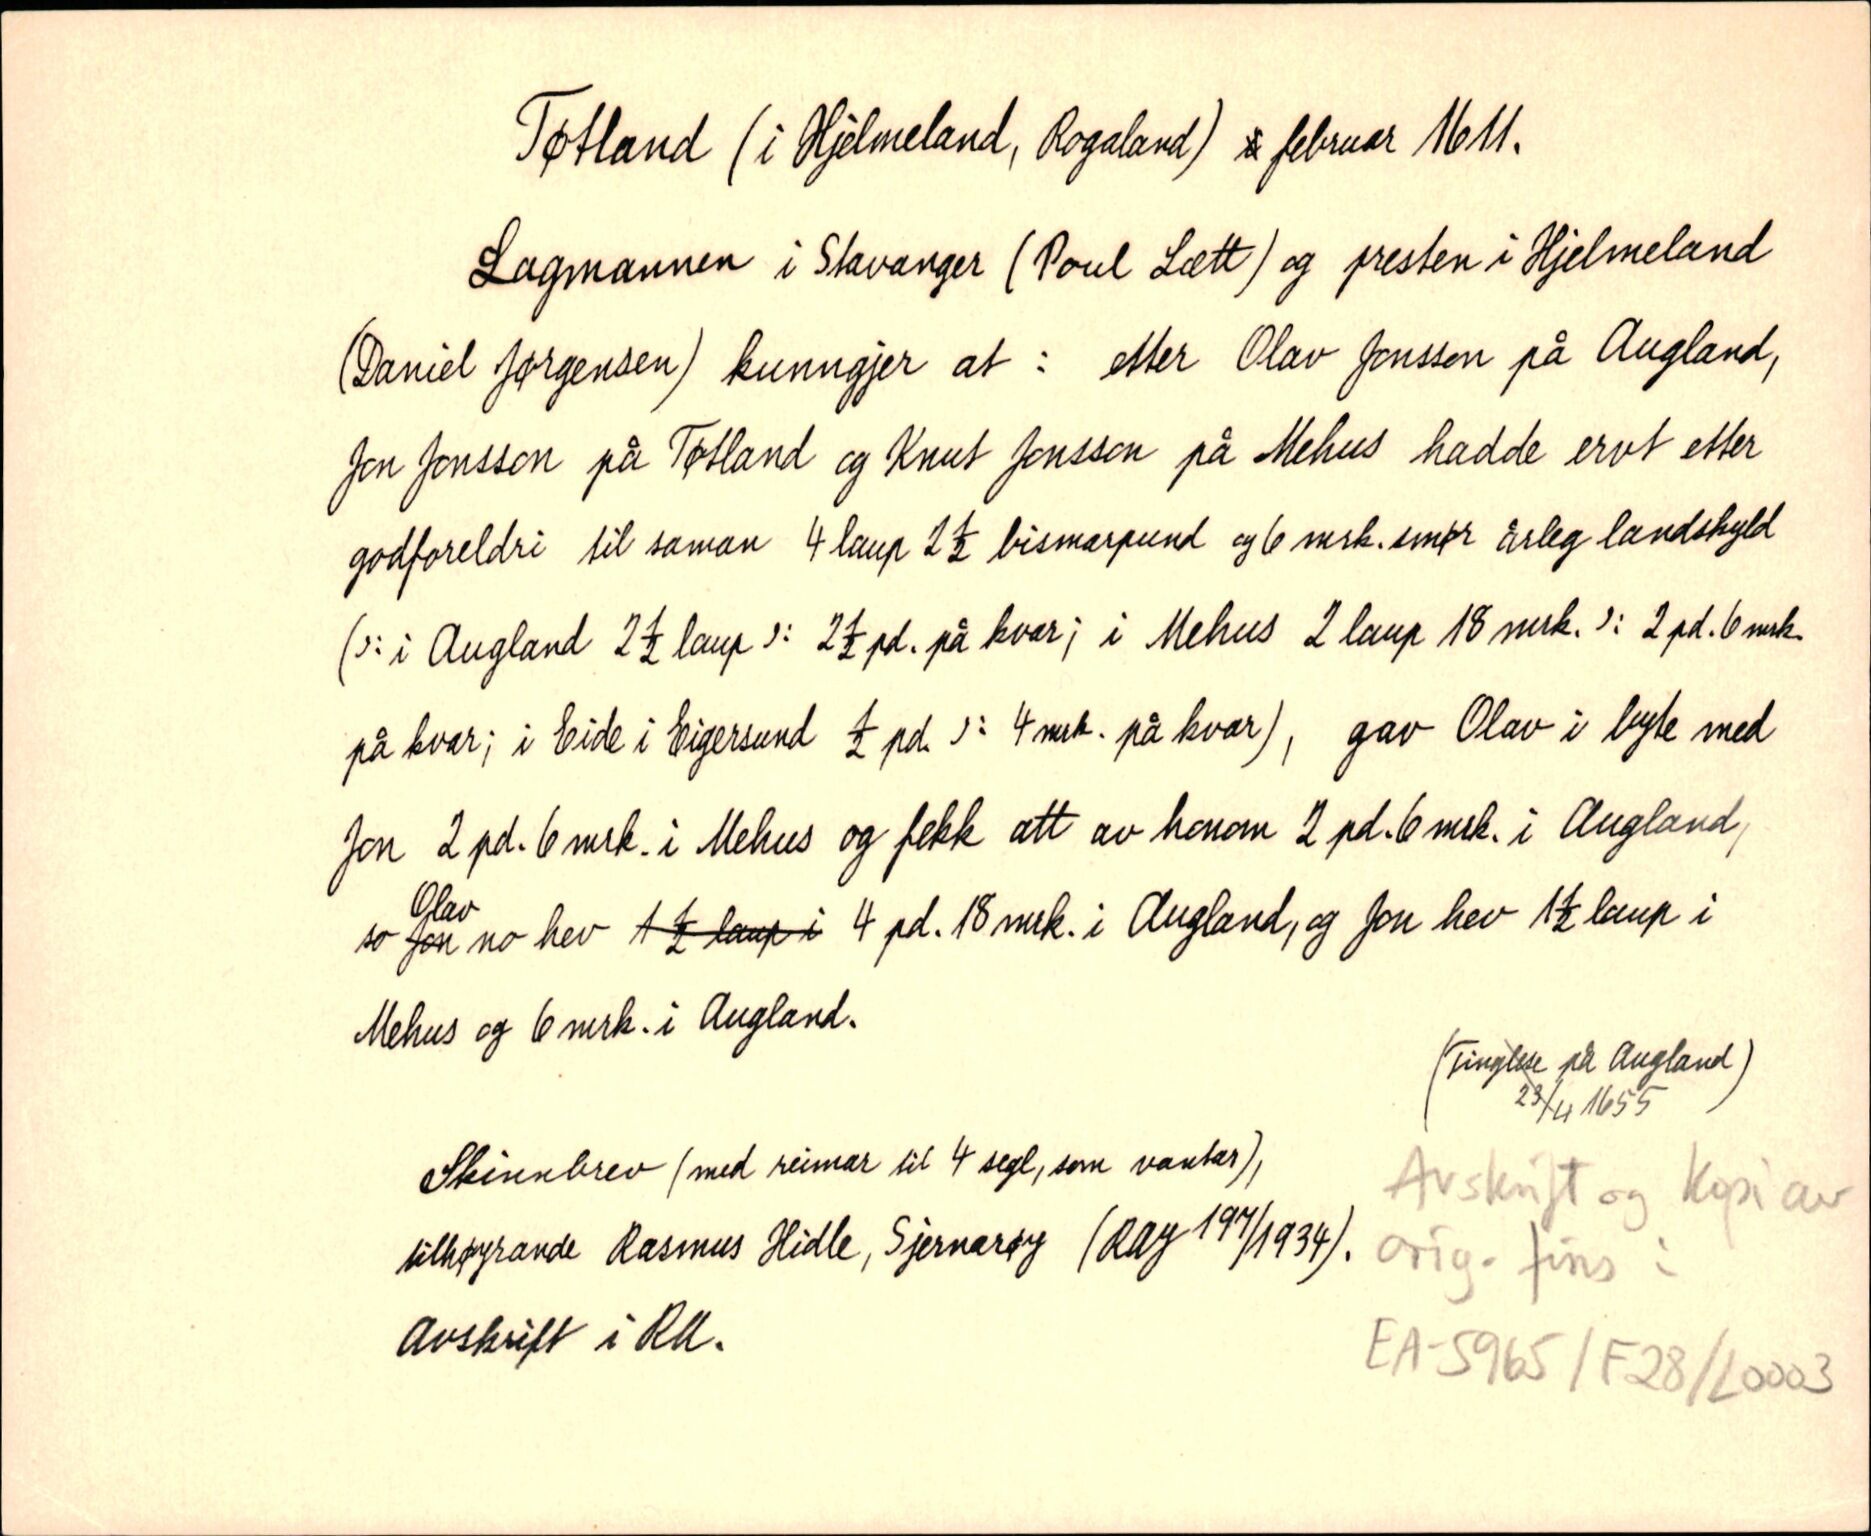 Tøtland (i Hjelmeland, Rogaland) februar 1611.
Lagmannen i Stavanger (Poul Lætt) og presten i Hjelmeland
(Daniel Jørgensen) kunngjer at : etter Olav Jonsson på Augland,
Jon Jonsson på Tøtland og Knut Jonsson på Mehus hadde ervt etter
godforeldri til saman 4 laup 2½ bismarpund og 6 mrk. smør årleg landskyld
(ɔ: i Augland 2½ laup ɔ: 2½ pd. på kvar; i Mehus 2 laup 18 mrk. ɔ: 2 pd. 6 mrk.
på kvar; i Eide i Eigersund ½ pd. ɔ: 4 mrk. på kvar), gav Olav i byte med
Jon 2 pd. 6 mrk. i Mehus og fekk att av honom 2 pd. 6 mrk. i Augland,
Olav
so Jon no hev 1½ laup i 4 pd. 18 mrk. i Augland, og Jon hev 1½ laup i
Mehus og 6 mrk. i Augland.
(Tinglese på Augland)
23/4 1655
Skinnbrev (med reimar til 4 segl, som vantar),
tilhøyrande Rasmus Hidle, Sjernarøy (RAy 197/1934).
Avskrift i RA.
Avskrift og Kopi av
orig. fins i
EA-5965/F28/L0003